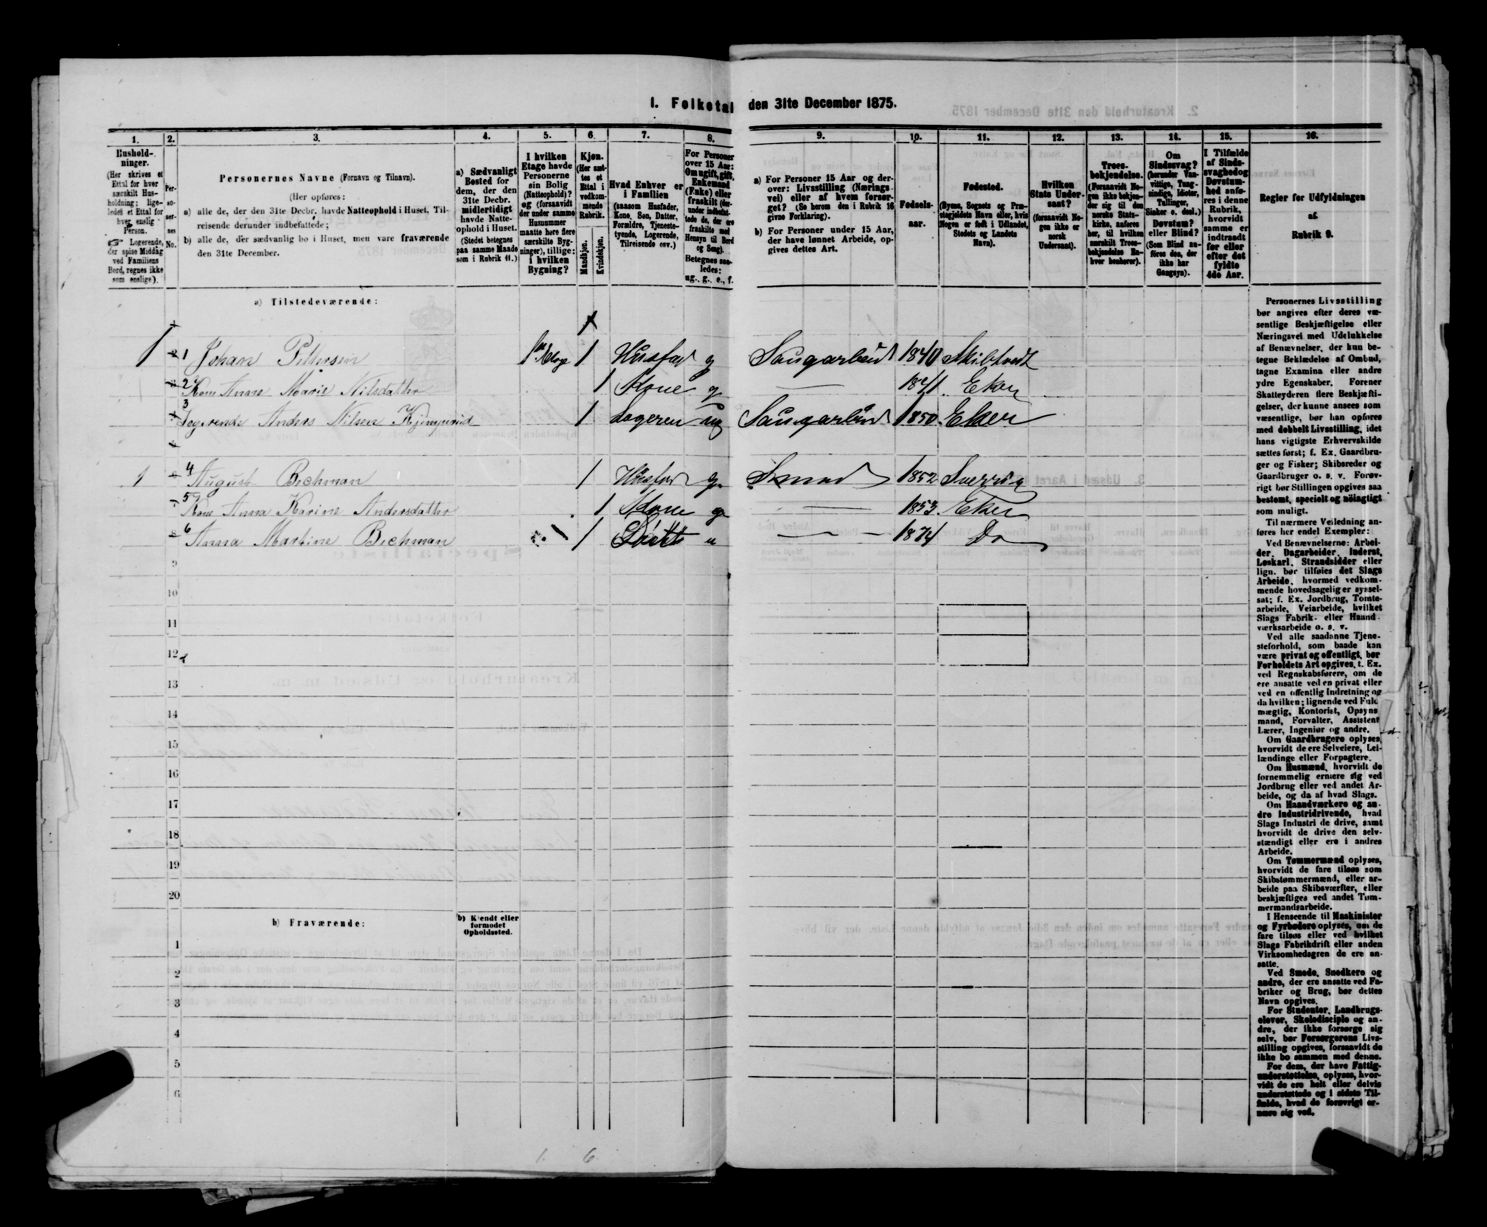 I. Folketal den 31te December 1875.
1. 2. 3. 4. 5. 6 7. 8. 9. 10. 11. 12. 13. 14. 15. 16.
Husholdninger.
(Her skrives et Ettal for hver særskilt Husholdning; ligeledes et Ettal for hver enslig Person.
Logerende, der spise Middag ved Familiens Bord, regnes ikke som enslige).
Personernes No.
Personernes Navne (Fornavn og Tilnavn).
(Her opføres:
a) alle de, der den 31te Decbr. havde Natteophold i Huset, Tilreisende derunder indbefattede;
b) alle de, der sædvanlig bo i Huset, men vare fraværende den 31te December.
a) Sædvanligt Bosted for dem, der den 31te Decbr. midlertidigt havde Natteophold i Huset.
(Stedet betegnes paa samme Maade som i Rubrik 11.)
I hvilken Etage havde Personerne sin Bolig (Natteophold)? og (forsaavidt der under samme Husnummer maatte høre flere særskilte Bygninger), tillige: i hvilken Bygning?
Kjøn.
(Her sættes et Ettal i vedkommende Rubrik.
Mandkjøn.
Kvindekjøn.
Hvad Enhver er i Familien
(saasom Husfader, Kone, Søn, Datter, Forældre, Tjenestetyende, Logerende, Tilreisende osv.)
For Personer over 15 Aar: Om ugift, gift, Enkemand (Enke) eller fraskilt (derunder indbefattede de, der ere fraskilte med Hensyn til Bord og Seng).
Betegnes saaledes: ug., g., e., f.
a) For Personer 15 Aar og derover: Livsstilling (Næringsvei) eller af hvem forsørget? (Se herom den i Rubrik 16 givne Forklaring).
b) For Personer under 15 Aar, der have lønnet Arbeide, opgives dettes Art.
Fødselsaar.
Fødested.
(Byens, Sognets og Præstegjeldets Navn eller, hvis Nogen er født i Udlandet, Stedets og Landets Navn).
Hvilken Stats Undersaat?
(forsaavidt Nogen ikke er norsk Undersaat).
Troesbekjendelse.
(Forsaavidt Nogen ikke bekjender sig til den norske Statskirke, anføres her, til hvilken særskilt Troesbekjendelse Enhver henhører).
Om Sindssvag? (herunder Vanvittige, Tungsindige, Idioter, Tullinger, Sinker o. desl.) Døvstum? eller Blind?
(Som Blind anføres den, der ikke har Gangsyn).
I Tilfælde af Sindssvaghed og Døvstumhed anføres i denne Rubrik, hvorvidt samme er indtraadt før eller efter det fyldte 4de Aar.
Regler for Udfyldningen af Rubrik 9.
a) Tilstedeværende:
1 1 Johan Pettersen 1 Husfad g Saugarbeid 1840 Skibtvedt
2 Kone Anne Marie Nilsdatter 1 Kone g 1841 Eker
3 Logerende Anders Nilsen 1 Logeren ug Saugarbeid 1850 Eker
1 4 August Bechman 1 Husfad g Smed 1852 Sverrig
5 Kone Anna Karine Andersdatter 1 Kone g 1853 Eker
6 Anna Martine Bechman 1 " 1874 Do
9
10
11
12
13
14
15
16
17
18
19
20
b) Fraværende:
b) Kjendt eller formodet Opholdssted.
1
2
3
4
5
6
1 6
Personernes Livsstilling
bør angives efter deres væ-
sentlige Beskjæftigelse eller
Næringsvei med Udelukkelse
af Benævnelser, der kun be-
tegne Beklædelse af Ombud,
tagne Examina eller andre
ydre Egenskaber. Forener
Skatteyderen flere Beskjæfti-
gelser, der kunne ansees som
væsentlige, bør han opføres
med dobbelt Livsstilling, idet
hans vigtigste Erhvervskilde
sættes først; f. Ex. Gaardbru-
ger og Fisker; Skibsreder og
Gaardbruger o. s. v. Forøv-
rigt bør Stillingen opgives saa
bestemt, specielt og nøiagtigt
som muligt.
Til nærmere Veiledning an-
føres her endel Exempler:
Ved Benævnelserne: Arbei-
der, Dagarbeider, Inderst,
Løskarl, Strandsidder eller
lign. bør tilføies det Slags
Arbeide, hvormed vedkom-
mende hovedsagelig er syssel-
sat; f. Ex. Jordbrug, Tomte-
arbeide, Veiarbeide, hvilket
Slags Fabrik- eller Haand-
værksarbeide o. s. v.
Ved alle saadanne Tjene-
steforhold, som baade kan
være privat og offentligt, bør
Forholdets Art opgives, t. Ex.
ved Regnskabsførere, om de
ere ansatte ved en privat eller
ved en offentlig Indretning og
da hvilken; lignende ved Fuld-
mægtig, Kontorist, Opsyns-
mand, Forvalter, Assistent
Lærer, Ingeniør og andre.
Om Gaardbrugere oplyses,
hvorvidt de ere Selveiere, Lei-
lændinge eller Forpagtere.
Om Husmænd, hvorvidt de
fornemmelig ernære sig ved
Jordbrug eller ved andet Ar-
beide, og da af hvad Slags.
Om Haandværkere og an-
dre Industridrivende, hvad
Slags Industri de drive, samt
hvorvidt de drive den selv-
stændigt eller ere i andres
Arbeide.
Om Tømmermænd oplyses,
hvorvidt de fare tilsøs som
Skibstømmermænd, eller ar-
beide paa Skibsværfter, eller
beskjæftiges ved andet Tøm-
mermandsarbeide.
I Henseende til Maskinister
og Fyrbødere oplyses, om de
fare tilsøs eller ved hvilket
Slags Fabrikdrift eller anden
Virksomhedsgren de ere an-
satte.
Ved Smede, Snedkere og
andre, der ere ansatte ved Fa-
briker og Brug, bør dettes
Navn opgives.
For Studenter, Landbrugs-
elever, Skoledisciple og an-
dre, der ikke forsørge sig
selv, bør Forsørgerens Livs-
stilling opgives, forsaavidt de
ikke bo sammen med denne.
For dem, der have Fattig-
understøttelse, oplyses, hvor-
vidt de ere helt eller delvis
understøttede og i sidste Til-
fælde, hvad de forøvrigt er-
nære sig ved.